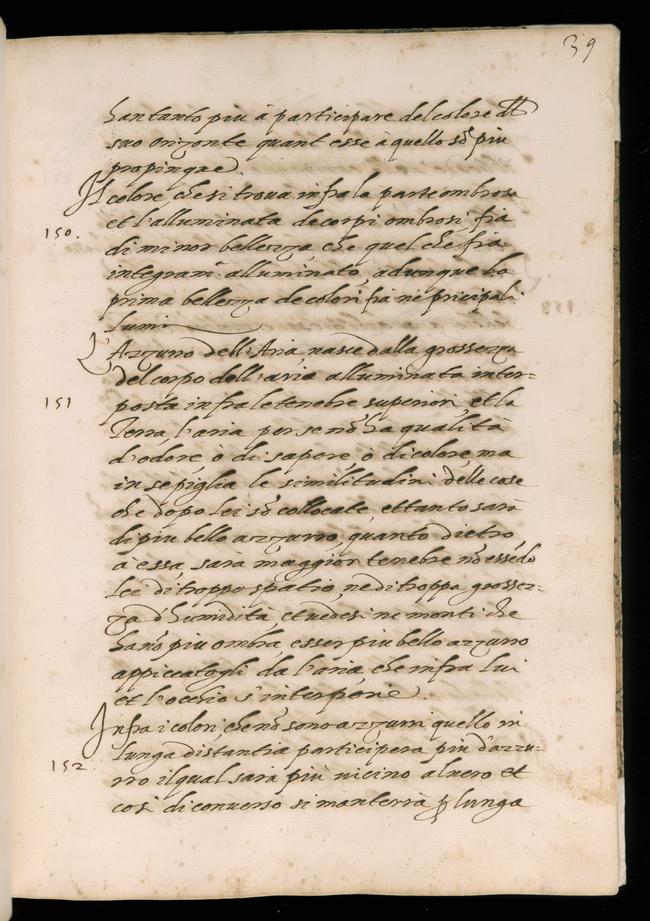 39
han tanto piu à participare del colore dl
suo orizonte quant esse à quello sõ piu
propinque.
Il colore che si trova infra la parte ombrosa
et l'alluminata de corpi ombrosi fia
150.
di minor bellezza che quel che fia
integram.e alluminato, adunque la
prima bellezza de colori fia ne pricipali
lumi
L'Azzurro dell'Aria nasce dalla grossezza
del corpo dell'aria alluminata inter-
151
posta infra le tenebre superiori, et la
Terra l'aria per se nõ ha qualità
d'odore ò di sapore ò di colore, ma
in se piglia le similitudini delle cose
che dopo lei sõ collocate, et tanto sarà
di piu bello azzurro, quanto dietro
a essa sarà maggior tenebre nõ essedo
lei di troppo spatio, ne di troppa grossez-
za d'humidità, et vedesi ne monti che
hano piu ombra, esser piu bello azzurro
appiccatogli da l'aria, che infra lui
et l'occhio s'interpone.
Infra i colori, che nõ sono azzurri quello in
lunga distantia participera piu d'azzu-
152.
rro il qual sarà più vicino al nero et
così di converso si manterrà ꝑ lunga